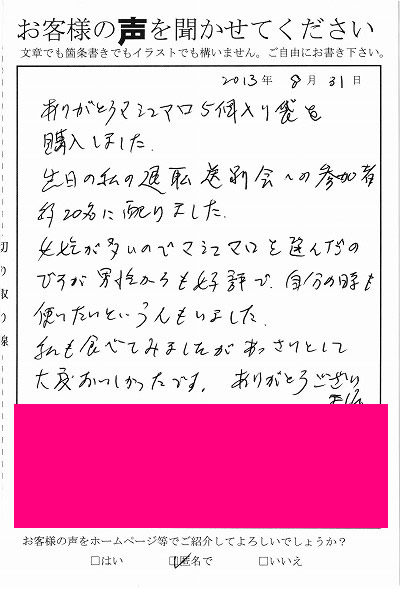 お客様の声を聞かせてください
文章でも箇条書きでもイラストでも構いません。ご自由にお書き下さい。
2013年 8月 31日
ありがとうマシュマロ5個入り袋を
購入しました.
先日の私の退転送別会への参加者
約20名に配りました.
女性が多いのでマシュマロを選んだの
ですが男性からも好評で、自分の時も
使いたいという人もいました.
私も食べてみましたがあっさりとして
大変おいしかったです。ありがとうござい
ました
切り取り線
お客様の声をホームページ等でご紹介してよろしいでしょうか？
□はい ☑匿名で □いいえ